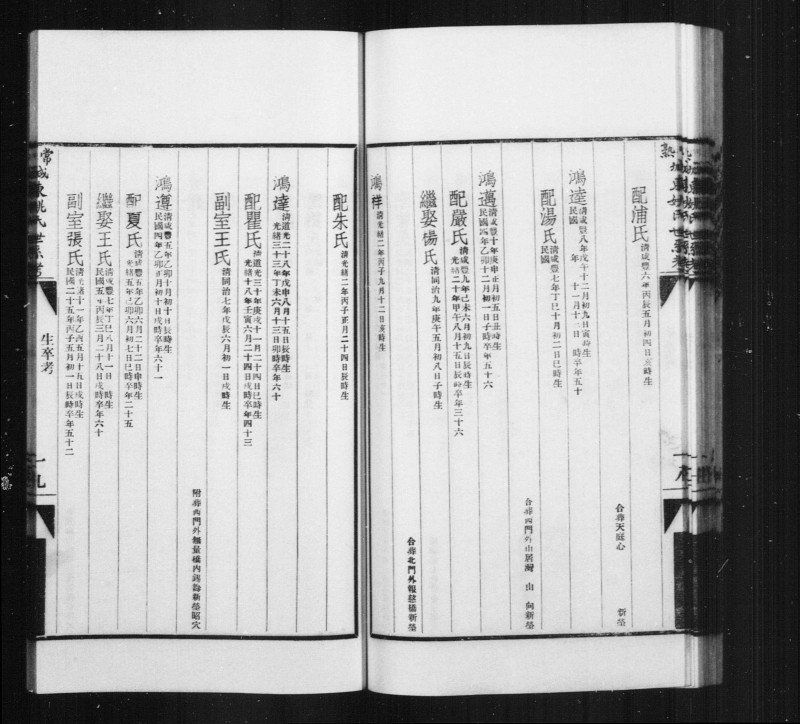 配浦氏 清咸豐六年丙辰五月初四日亥時生
合葬天庭心 新塋
鴻達 清咸豐八年戊午十二月初九日寅時生
民國 年 十一月十三日 時卒年五十
配湯氏 清咸豐七年丁巳十月初二日巳時生
民國
合葬西門外山居灣 山 向新塋
鴻邁 清咸豐十年庚申正月初五日丑時生
民國四年乙卯十二月初一日子時卒年五十六
配嚴氏 清咸豐九年己未六月初九日辰時生
光緒二十年甲午八月十五日辰時卒年三十六
繼娶楊氏 清同治九年庚午五月初八日子時生
合葬北門外報慈橋新塋
鴻祥 清光緒二年丙子九月十二日亥時生
配朱氏 清光緒二年丙子正月二十四日辰時生
鴻達 清道光二十八年戊申八月十五日辰時生
光緒三十三年丁未六月十三日卯時卒年六十
配瞿氏 清道光三十年庚戌十一月二十四日巳時生
光緒十八年壬寅六月二十四日戌時卒年四十三
副室王氏 清同治七年戊辰六月初一日戌時生
附葬西門外 橋內 新塋昭穴
鴻遵 清咸豐五年乙卯十月初十日辰時生
民國四年乙卯正月初十日戌時卒年六十一
配夏氏 清咸豐五年乙卯六月二十二日申時生
光緒五年己卯六月初七日巳時卒年二十五
繼娶王氏 清咸豐七年丁巳八月十一日 時生
民國五年丙辰三月二十八日戌時卒年六十
副室張氏 清光緒十一年乙酉五月十五日戌時生
民國二十五年丙子五月初一日辰時卒年五十二
常
城東姚氏世系考
生卒考
一九